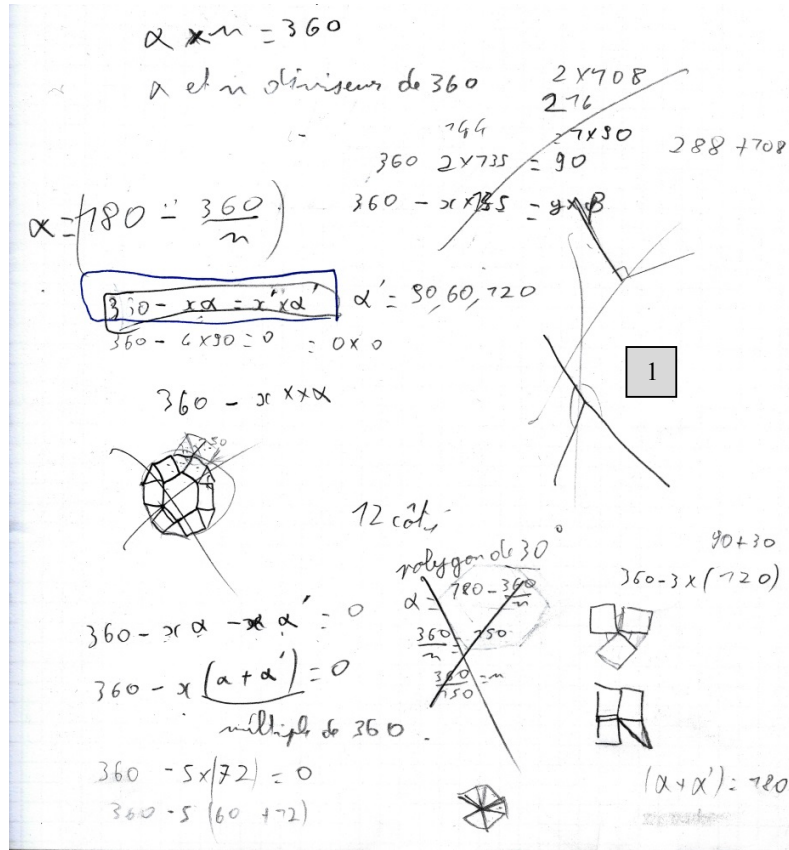 α × n = 360
α et n diviseur de 360
2×108
216
144
= 1×90
288 + 108
360 2×135 = 90
360 - x × 135 = y × β
α = (180 - 360/n)
360 - xα = x'×α'
α' = 90, 60, 120
360 - 4×90 = 0 = 0×0
1
360 - x × α
150
12 côtés
polygon de 30°
α = 180 - 360/n
360/n = 150
360/150 = n
90+30
360-3×(120)
360 - xα - x α' = 0
360 - x (α + α') = 0
multiple de 360.
360 - 5×(72) = 0
360 - 5 (60 + 12)
(α+α') = 180